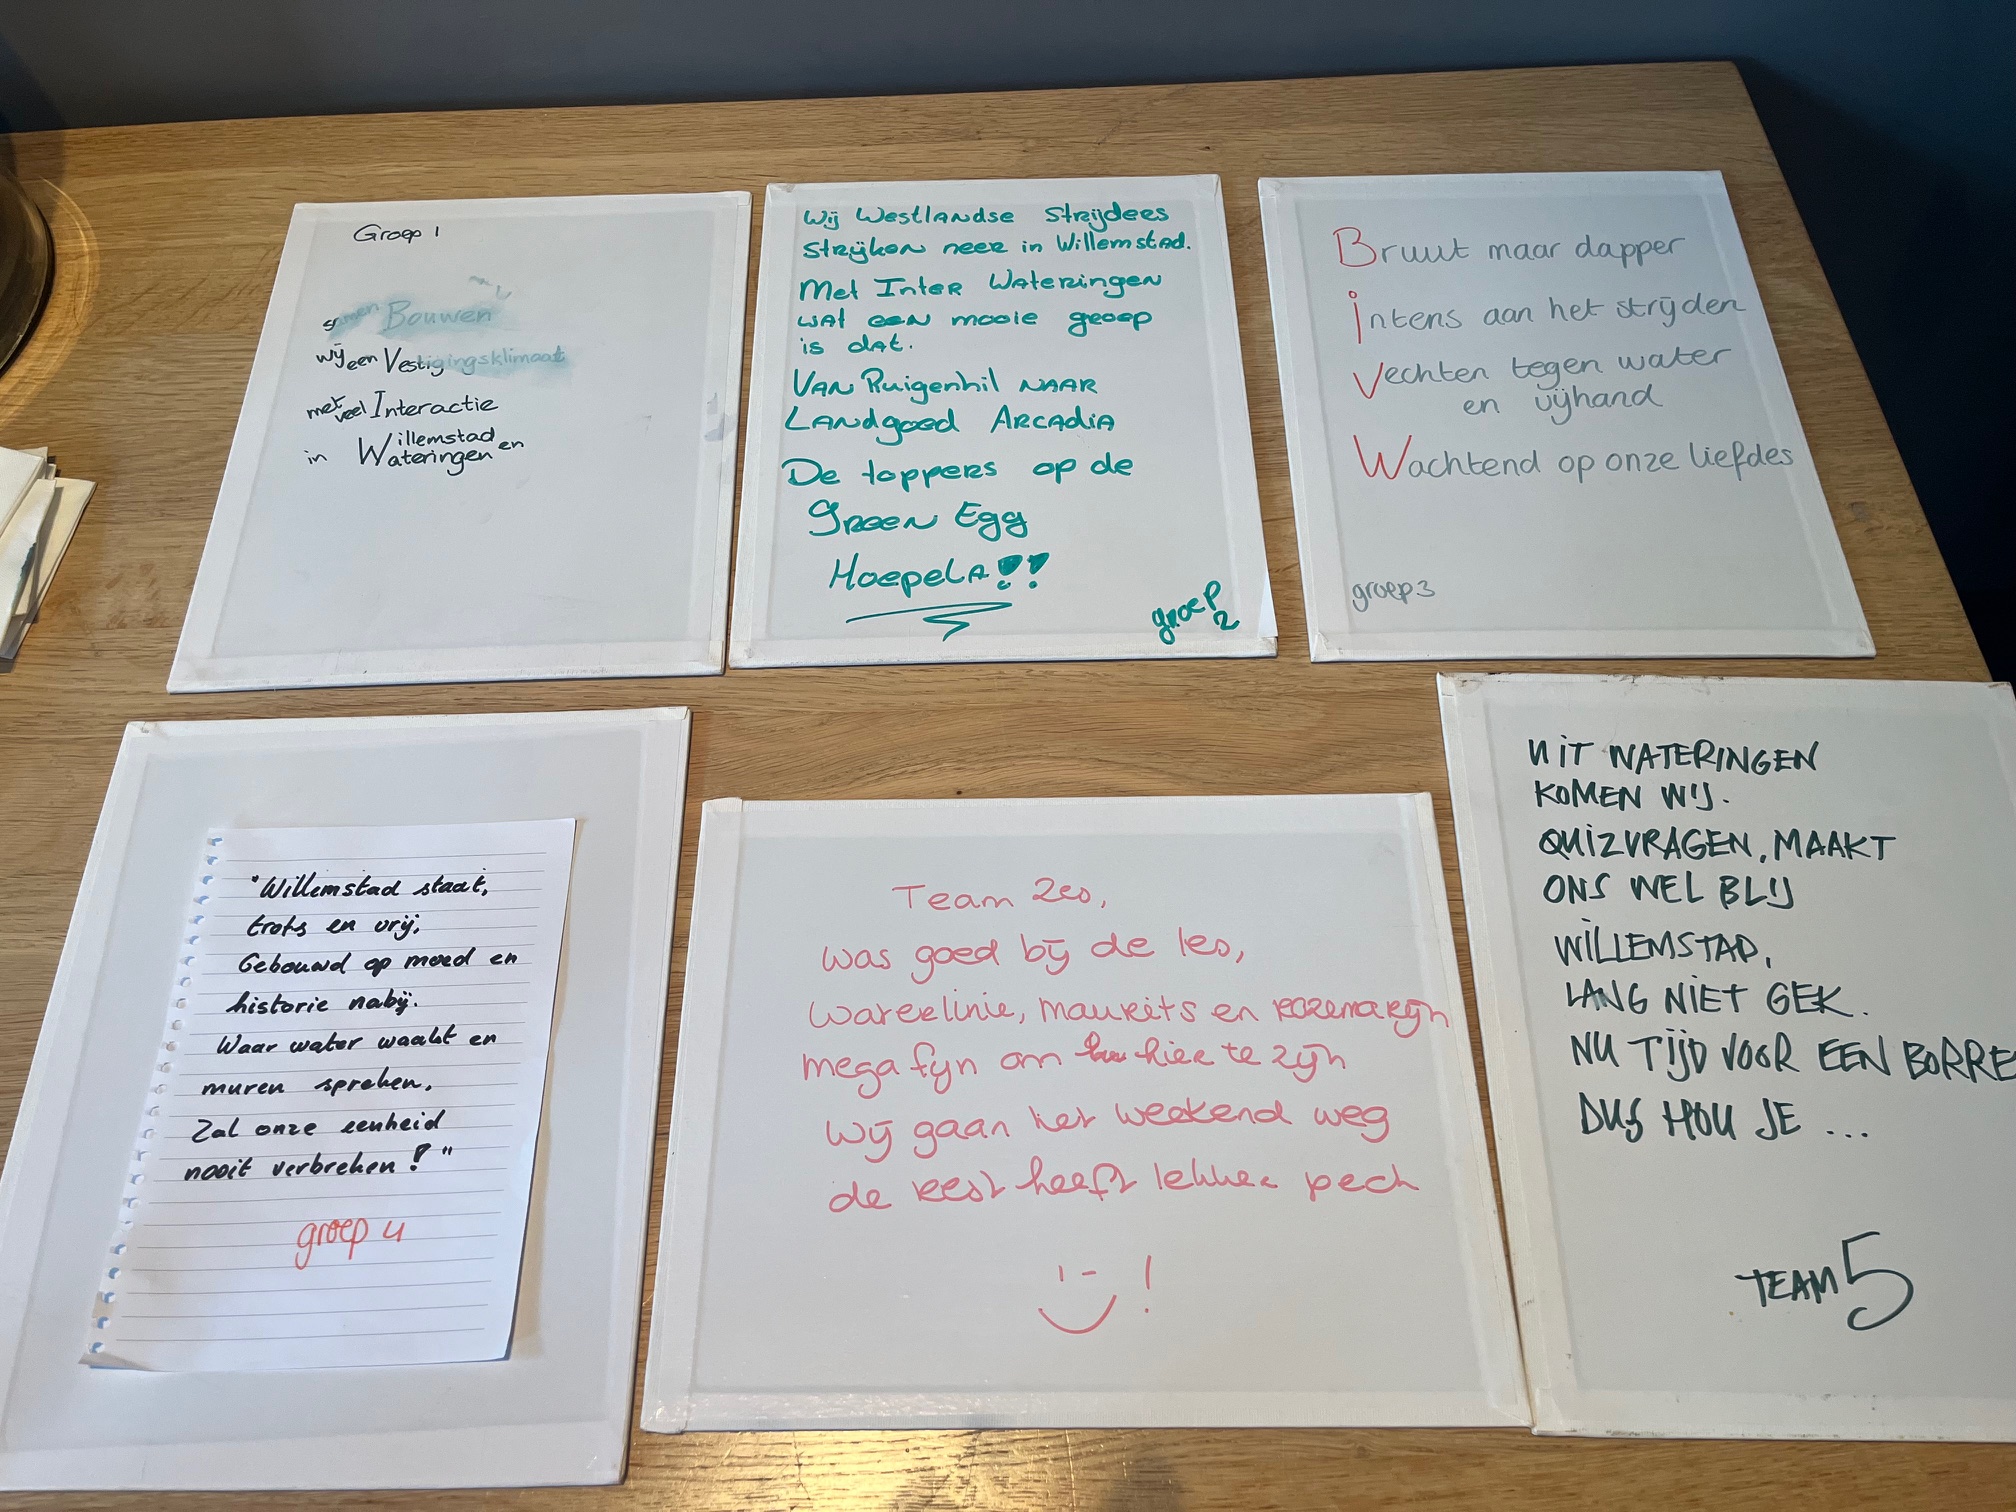 Groep 1
samen Bouwen
wij een Vestigingsklimaat
met veel Interactie
in Willemstad en
Wateringen
Wij Westlandse Strijders
strijken neer in Willemstad.
Met Inter Wateringen
wat een mooie groep
is dat.
Van Ruigenhil naar
Landgoed Arcadia
De toppers op de
Green Egg
Hoepela!!
groep 2
Bruut maar dapper
intens aan het strijden
Vechten tegen water
en vijhand
Wachtend op onze liefdes
groep 3
"Willemstad staat,
trots en vrij,
Gebouwd op moed en
historie nabij.
Waar water waakt en
muren spreken,
Zal onze eenheid
nooit verbreken!"
groep 4
Team Zes,
was goed bij de les,
waterlinie, maurits en rozemarijn
mega fijn om hier te zijn
wij gaan het weekend weg
de rest heeft lekker pech
!
UIT WATERINGEN
KOMEN WIJ.
QUIZVRAGEN, MAAKT
ONS WEL BLIJ
WILLEMSTAD,
LANG NIET GEK.
NU TIJD VOOR EEN BORRE
DUS HOU JE ...
TEAM 5